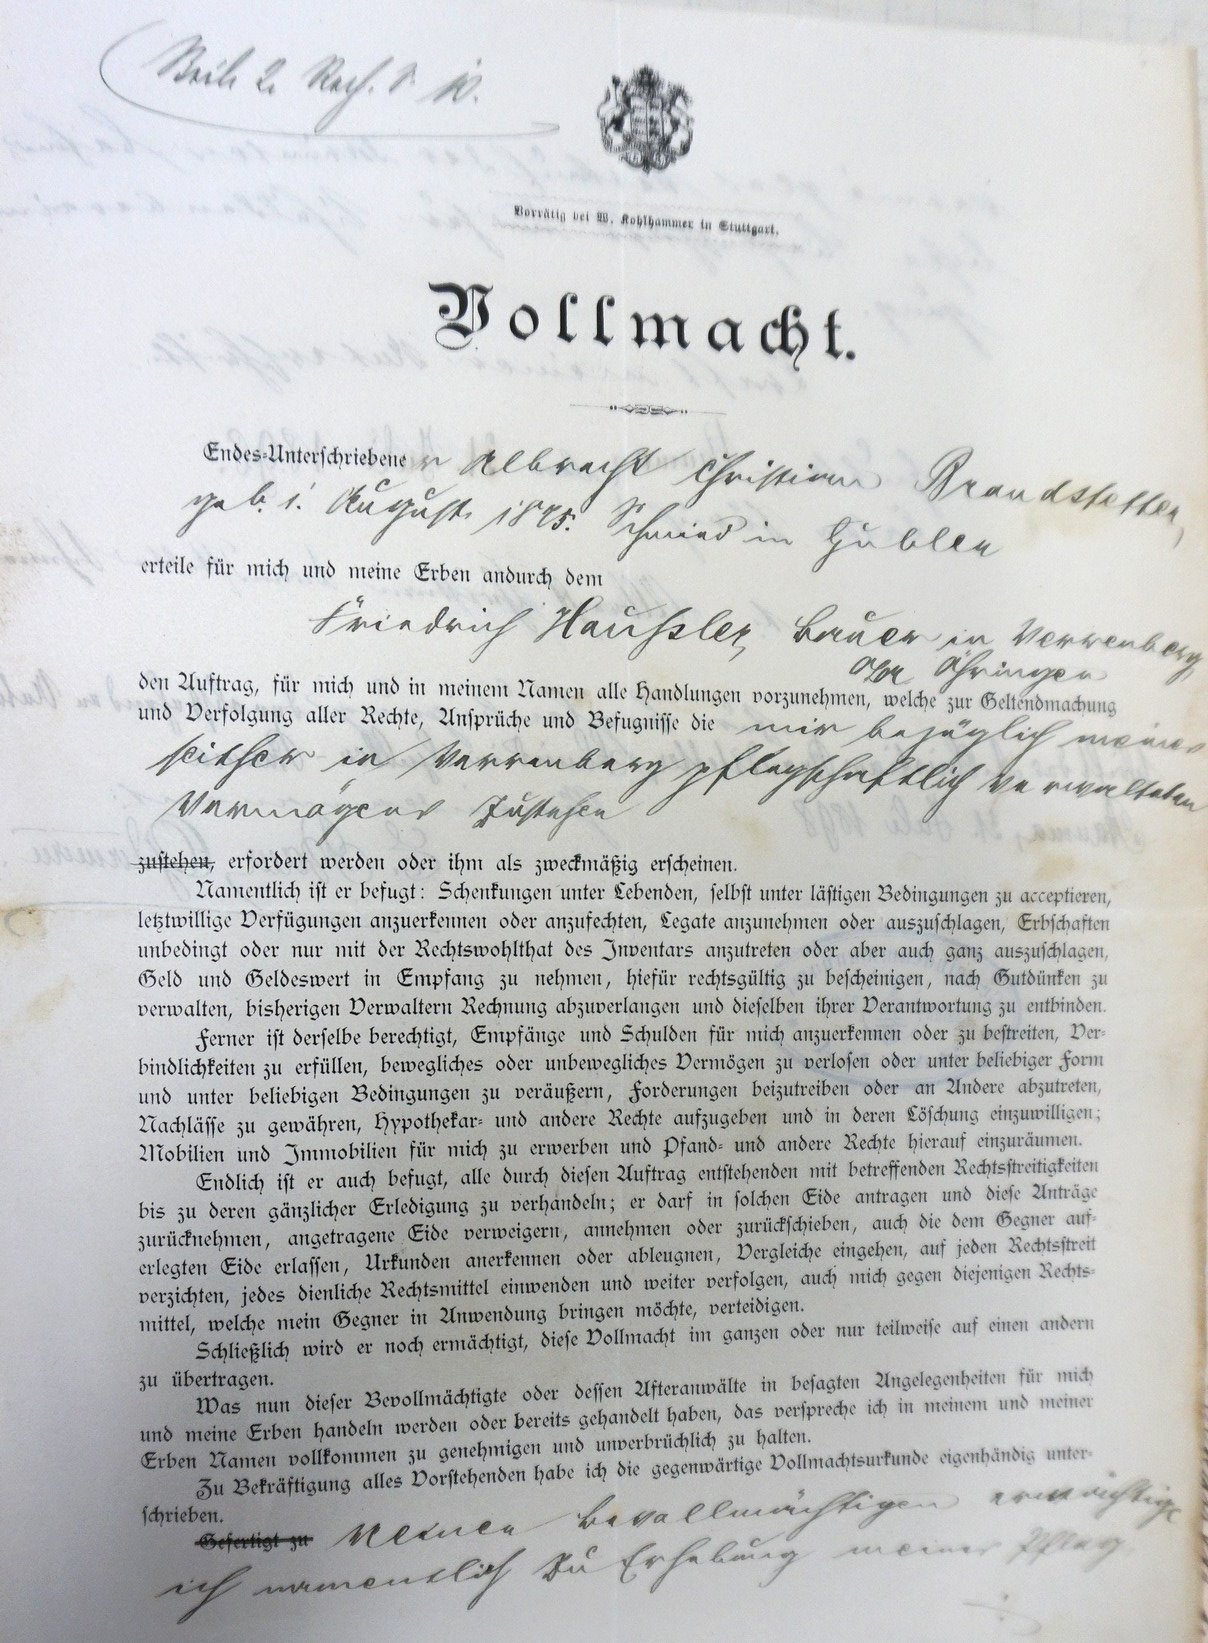 Beil. 2. Rech. S. 10.
Vorrätig bei W. Kohlhammer in Stuttgart.
Vollmacht.
Endes-Unterschriebener Albrecht Christian Brandstetter,
geb. 1. August 1875. Schmied in
erteile für mich und meine Erben andurch dem
Friedrich Haußler, Bauer in Verrenberg
O/A Öhringen
den Auftrag, für mich und in meinem Namen alle Handlungen vorzunehmen, welche zur Geltendmachung
und Verfolgung aller Rechte, Ansprüche und Befugnisse die mir bezüglich meines
seither in Verrenberg pflegschaftlich verwalteten
Vermögens zustehen
zustehen, erfordert werden oder ihm als zweckmäßig erscheinen.
Namentlich ist er befugt: Schenkungen unter Lebenden, selbst unter lästigen Bedingungen zu acceptieren,
letztwillige Verfügungen anzuerkennen oder anzufechten, Legate anzunehmen oder auszuschlagen, Erbschaften
unbedingt oder nur mit der Rechtswohlthat des Inventars anzutreten oder aber auch ganz auszuschlagen,
Geld und Geldeswert in Empfang zu nehmen, hiefür rechtsgültig zu bescheinigen, nach Gutdünken zu
verwalten, bisherigen Verwaltern Rechnung abzuverlangen und dieselben ihrer Verantwortung zu entbinden.
Ferner ist derselbe berechtigt, Empfänge und Schulden für mich anzuerkennen oder zu bestreiten, Ver-
bindlichkeiten zu erfüllen, bewegliches oder unbewegliches Vermögen zu verlosen oder unter beliebiger Form
und unter beliebigen Bedingungen zu veräußern, Forderungen beizutreiben oder an Andere abzutreten,
Nachlässe zu gewähren, Hypothekar- und andere Rechte aufzugeben und in deren Löschung einzuwilligen;
Mobilien und Immobilien für mich zu erwerben und Pfand- und andere Rechte hierauf einzuräumen.
Endlich ist er auch befugt, alle durch diesen Auftrag entstehenden mit betreffenden Rechtsstreitigkeiten
bis zu deren gänzlicher Erledigung zu verhandeln; er darf in solchen Eide antragen und diese Anträge
zurücknehmen, angetragene Eide verweigern, annehmen oder zurückschieben, auch die dem Gegner auf-
erlegten Eide erlassen, Urkunden anerkennen oder ableugnen, Vergleiche eingehen, auf jeden Rechtsstreit
verzichten, jedes dienliche Rechtsmittel einwenden und weiter verfolgen, auch mich gegen diejenigen Rechts-
mittel, welche mein Gegner in Anwendung bringen möchte, verteidigen.
Schließlich wird er noch ermächtigt, diese Vollmacht im ganzen oder nur teilweise auf einen andern
zu übertragen.
Was nun dieser Bevollmächtigte oder dessen Afteranwälte in besagten Angelegenheiten für mich
und meine Erben handeln werden oder bereits gehandelt haben, das verspreche ich in meinem und meiner
Erben Namen vollkommen zu genehmigen und unverbrüchlich zu halten.
Zu Bekräftigung alles Vorstehenden habe ich die gegenwärtige Vollmachtsurkunde eigenhändig unter-
schrieben.
Gefertigt zu Meinen Bevollmächtigten ermächtige
ich namentlich zu Erhebung meines Pfleg